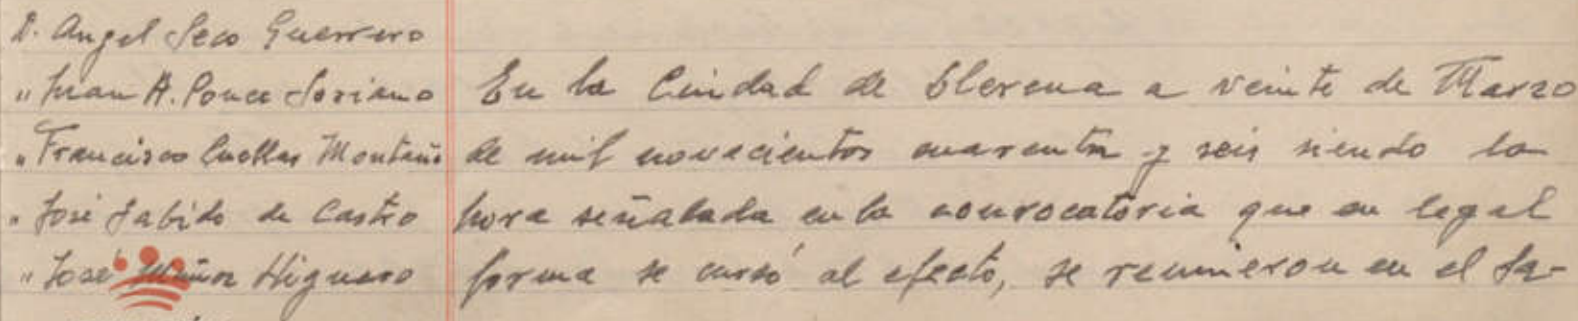 D. Angel Seco Guerrero
" Juan A. Ponce Soriano
" Francisco Cuellar Montaño
" José Sabido de Castro
" José Muñoz Higuero
En la Ciudad de Llerena a veinte de Marzo
de mil novecientos cuarenta y seis siendo la
hora señalada en la convocatoria que en legal
forma se cursó al efecto, se reunieron en el Sa-